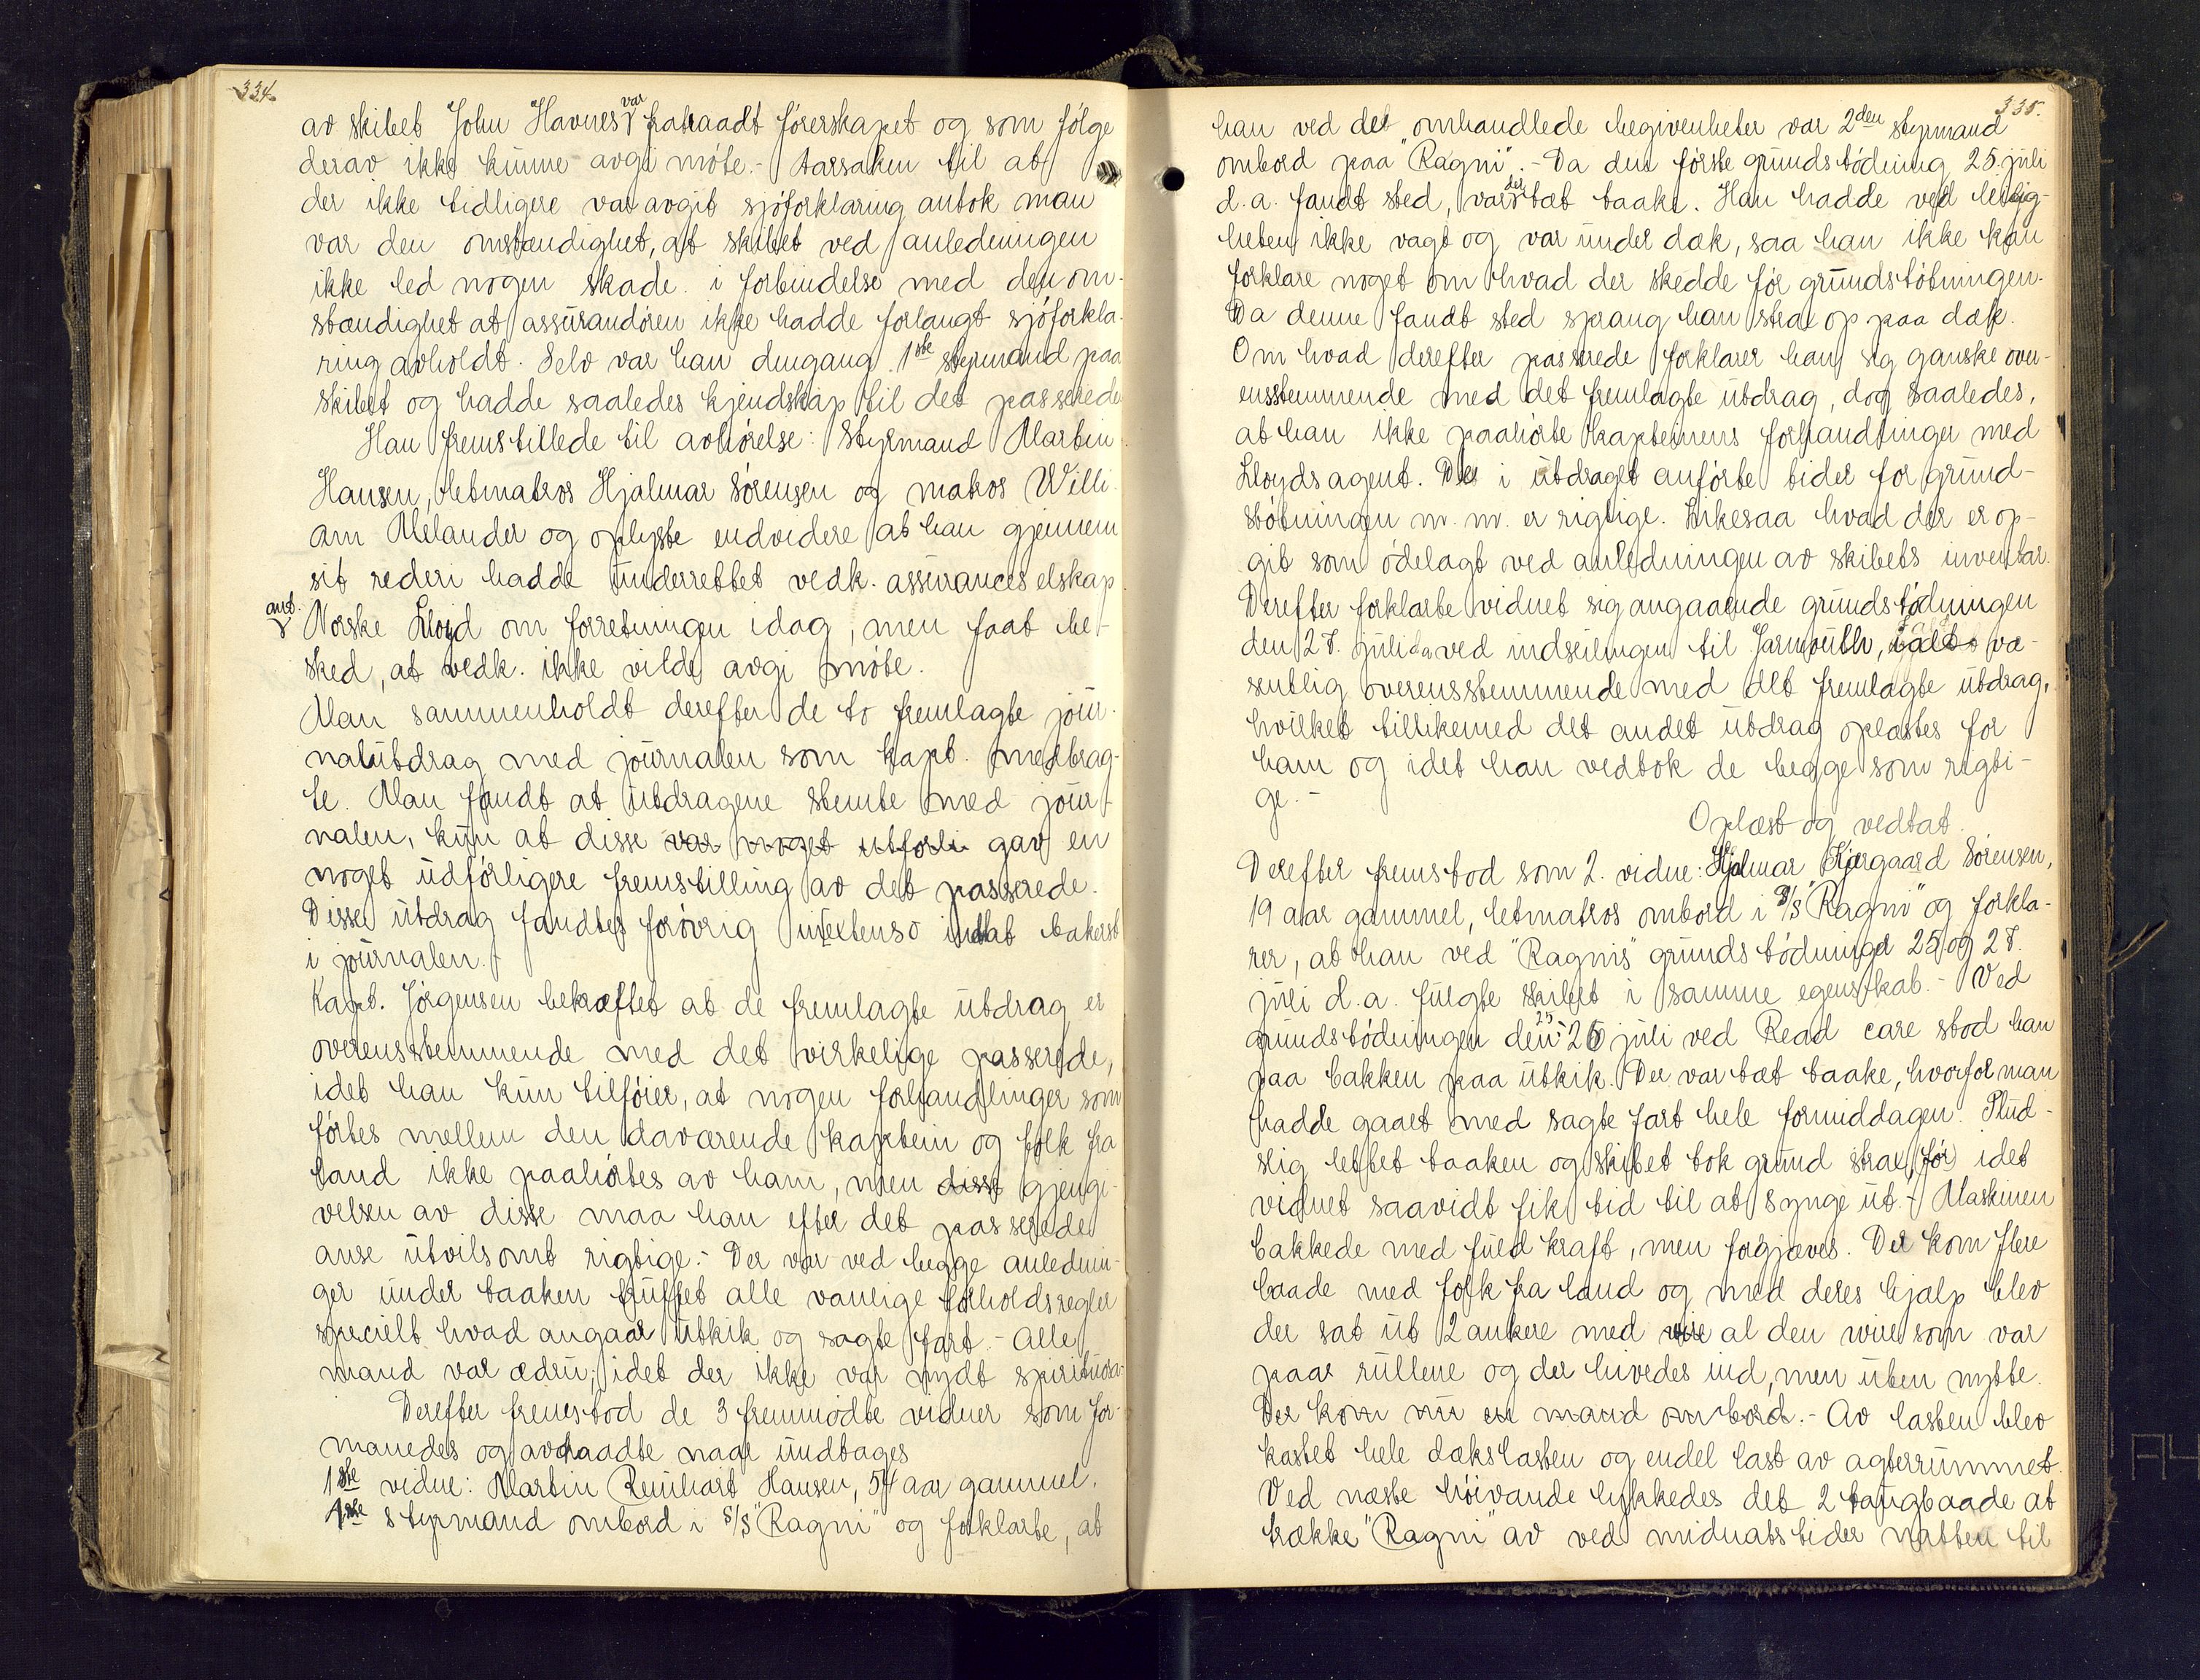 334.
av skibet John Havnes var fratraadt förerskapet og som fölge
derav ikke kunne avgi möte.- Aarsaken til at
der ikke tidligere var avgit sjöforklaring antok man
var den omstændighet, at skibet ved anledningen
ikke led nogen skade i forbindelse med den om-
stændighet at assurandören ikke hadde forlangt sjöforkla-
ring avholdt. Selv var han dengang 1ste styrmand paa
skibet og hadde saaledes kjendskap til det passerede
Han fremstillede til avhörelse: Styrmand Martin
Hansen, letmatros Hjalmar Sörensen og matros Willi-
am Melander og oplyste endvidere at han gjennem
sit rederi hadde underrettet vedk. assuranceselskap
ant. Norske Lloyd om forretningen idag, men faat be-
sked, at vedk. ikke vilde avgi möte.
Man sammenholdt derefter de to fremlagte jour-
nalutdrag med journalen som kapt. medbrag-
te. Man fandt at utdragene stemte med jour-
nalen, kun at disse var noget utförli gav en
noget udförligere fremstilling av det passerede.
Disse utdrag fandtes forövrig in extenso indtat bakerst
i journalen.-
Kapt. Jörgensen bekræftet at de fremlagte utdrag er
overensstemmende med det virkelige passerede,
idet han kun tilföier, at nogen forhandlinger som
förtes mellem den daværende kaptein og folk fra
land ikke paahörtes av ham, men disse gjengi-
velsen av disse maa han efter det passerede
anse utvilsomt rigtige.- Der var ved begge anlednin-
ger under taaken truffet alle vanlige forholdsregler
specielt hvad angaar utkik og sagte fart.- Alle
mand var ædru, idet der ikke var nydt spirituosa.
Derefter fremstod de 3 fremmödte vidner som for-
manedes og avtraadte naar undtages
1ste vidne: Martin Reinhart Hansen, 54 aar gammel,
1ste styrmand ombord i S/S "Ragni" og forklarte, at
335.
han ved det omhandlede begivenheter var 2den styrmand
ombord paa "Ragni".- Da den förste grundstödning 25. juli
d.a. fandt sted, var der tæt taake. Han hadde ved leilig-
heten ikke vagt og var under dæk, saa han ikke kan
forklare noget om hvad der skedde för grundstötningen.
Da denne fandt sted sprang han strax op paa dæk.
Om hvad derefter passerede forklarer han sig ganske over-
ensstemmende med det fremlagte utdrag, dog saaledes,
at han ikke paahörte kapteinens forhandlinger med
Lloyds agent. De i utdraget anförte tider for grund-
stötningen m. m. er rigtige. Likesaa hvad der er op-
git som ödelagt ved anledningen av skibets inventar.
Derefter forklarte vidnet sig angaaende grundstödningen
den 27. juli da ved indseilingen til Jarmouth, væ-
sentlig overensstemmende med det fremlagte utdrag,
hvilket tillikemed det andet utdrag oplæstes for
ham og idet han vedtok de begge som rigti-
ge.-
Oplæst og vedtat.
Derefter fremstod som 2. vidne: Hjalmar Kjærgaard Sörensen,
19 aar gammel, letmatros ombord i S/S "Ragni" og forkla-
rer, at han ved "Ragnis" grundstödninger 25 og 27.
juli d.a. fulgte skibet i samme egenskab.- Ved
grundstödningen den 25 26 juli ved Read care stod han
paa bakken paa utkik. Der var tæt taake, hvorfor man
hadde gaaet med sagte fart hele formiddagen. Plud-
slig lettet taaken og skibet tok grund strax (för) idet
vidnet saavidt fik tid til at synge ut.- Maskinen
bakkede med fuld kraft, men forgjæves. Der kom flere
baade med folk fra land og med deres hjælp blev
der sat ut 2 ankere med wire al den wire som var
paa rullene og der hivedes ind, men uten nytte.
Der kom nu en mand ombord.- Av lasten blev
kastet hele dækslasten og endel last av agterrummet.
Ved næste höivande lykkedes det 2 taugbaade at
trække "Ragni" av ved midnatstider natten til